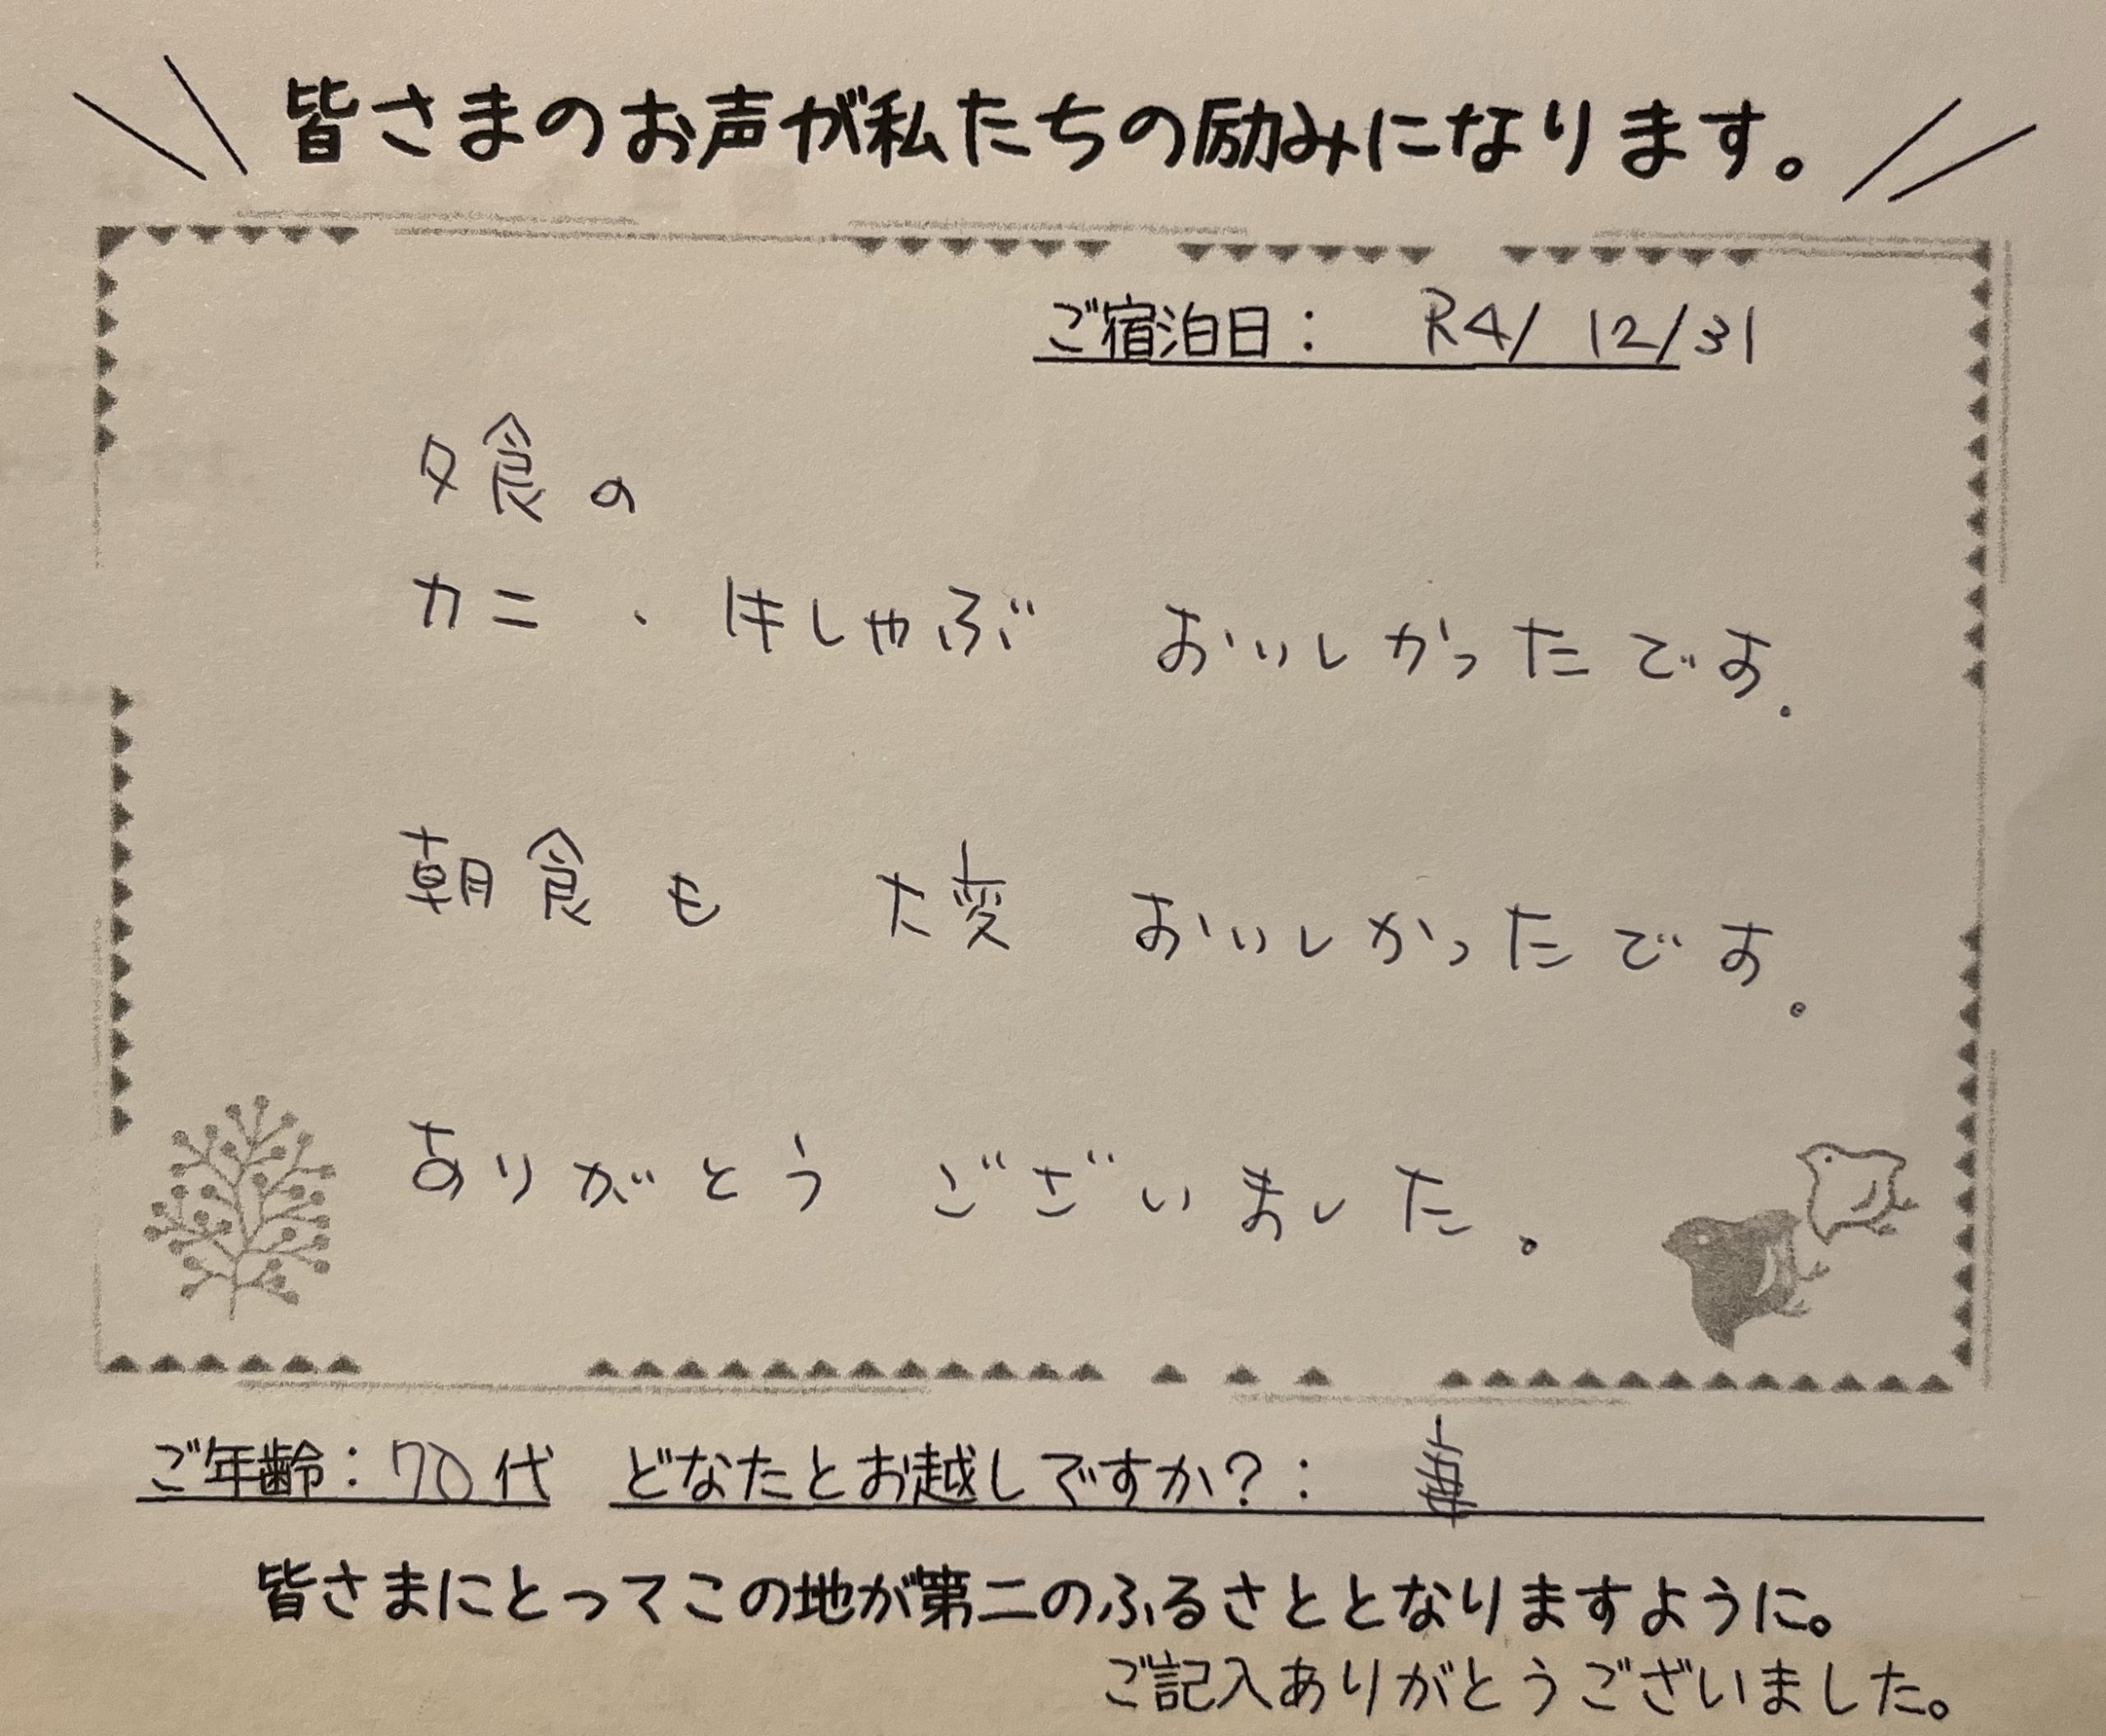 皆さまのお声が私たちの励みになります。
ご宿泊日： R4/ 12/31
夕食の
カニ・牛しゃぶ おいしかったです。
朝食も 大変 おいしかったです。
ありがとう ございました。
ご年齢：70代 どなたとお越しですか？： 妻
皆さまにとってこの地が第二のふるさととなりますように。
ご記入ありがとうございました。